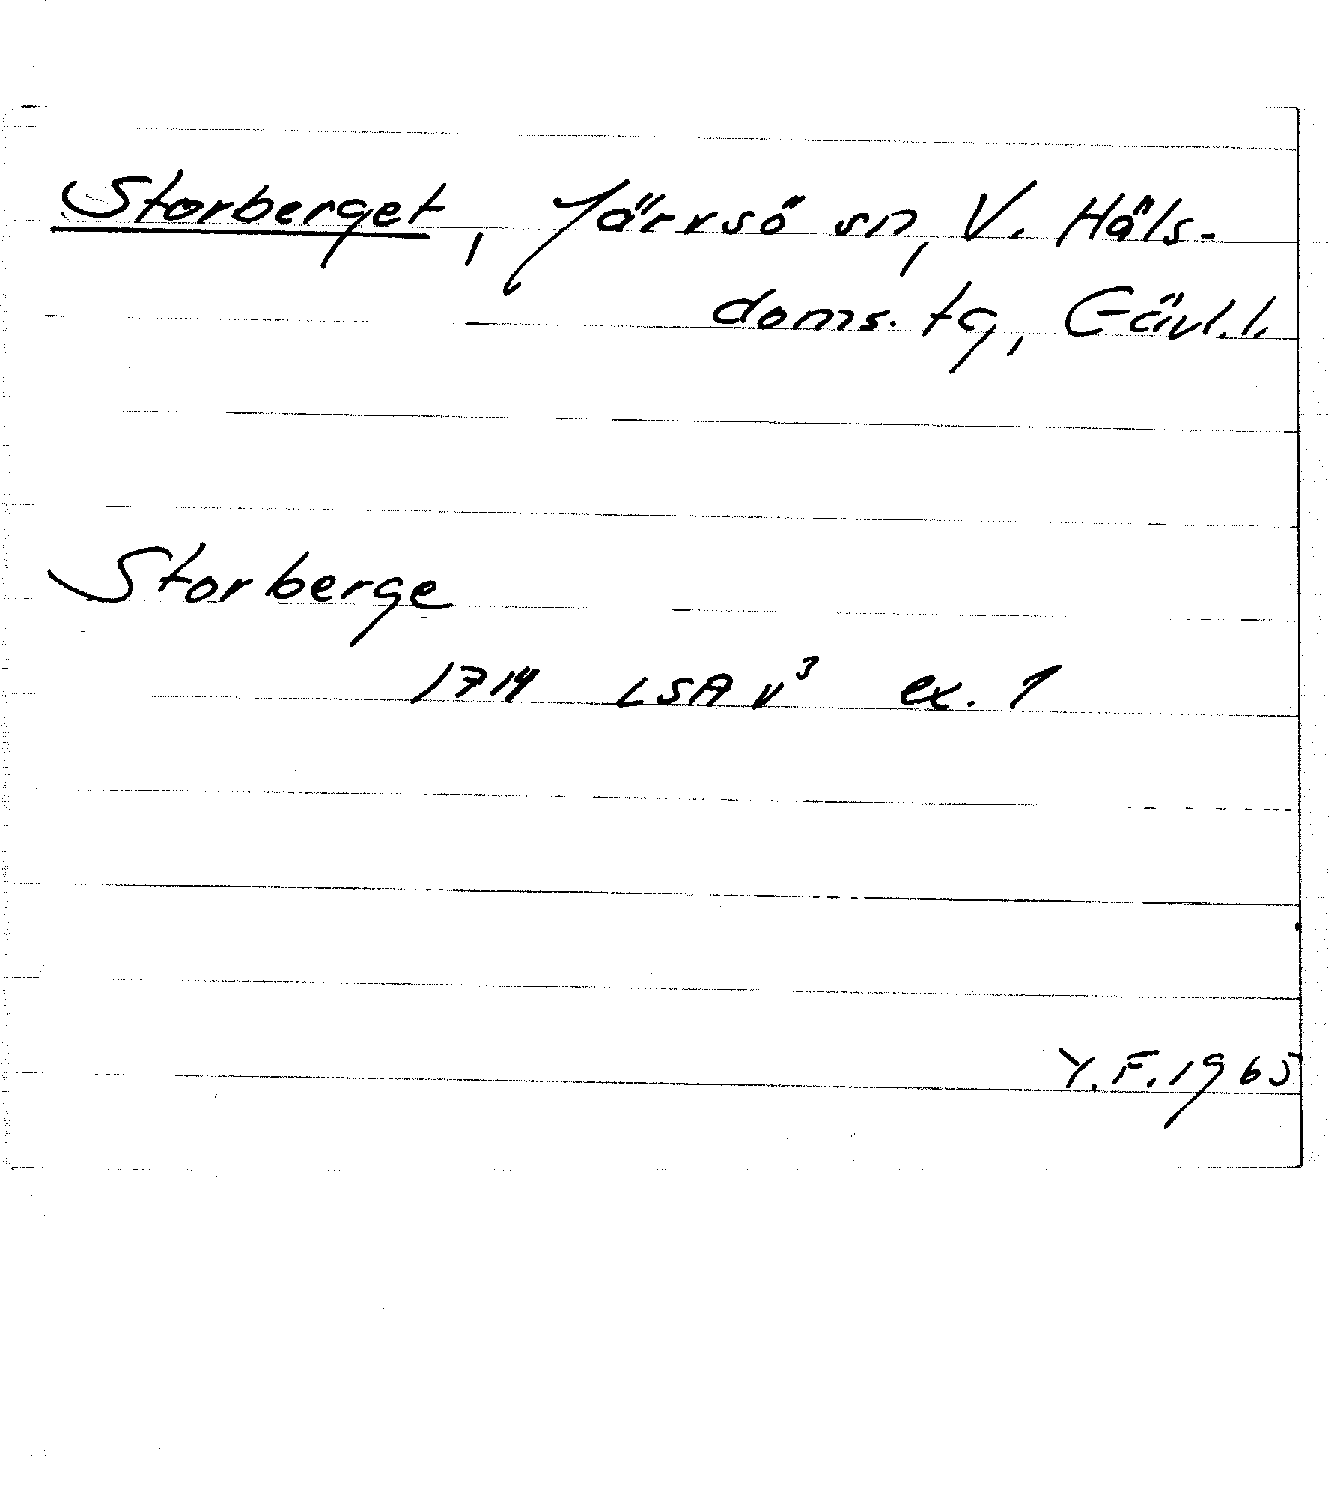 Storberget, Järvsö sn, V. Häls.
doms. tg, Gävl. l.
Storberge
1714 LSA v³ ex. 1
Y. F. 1965